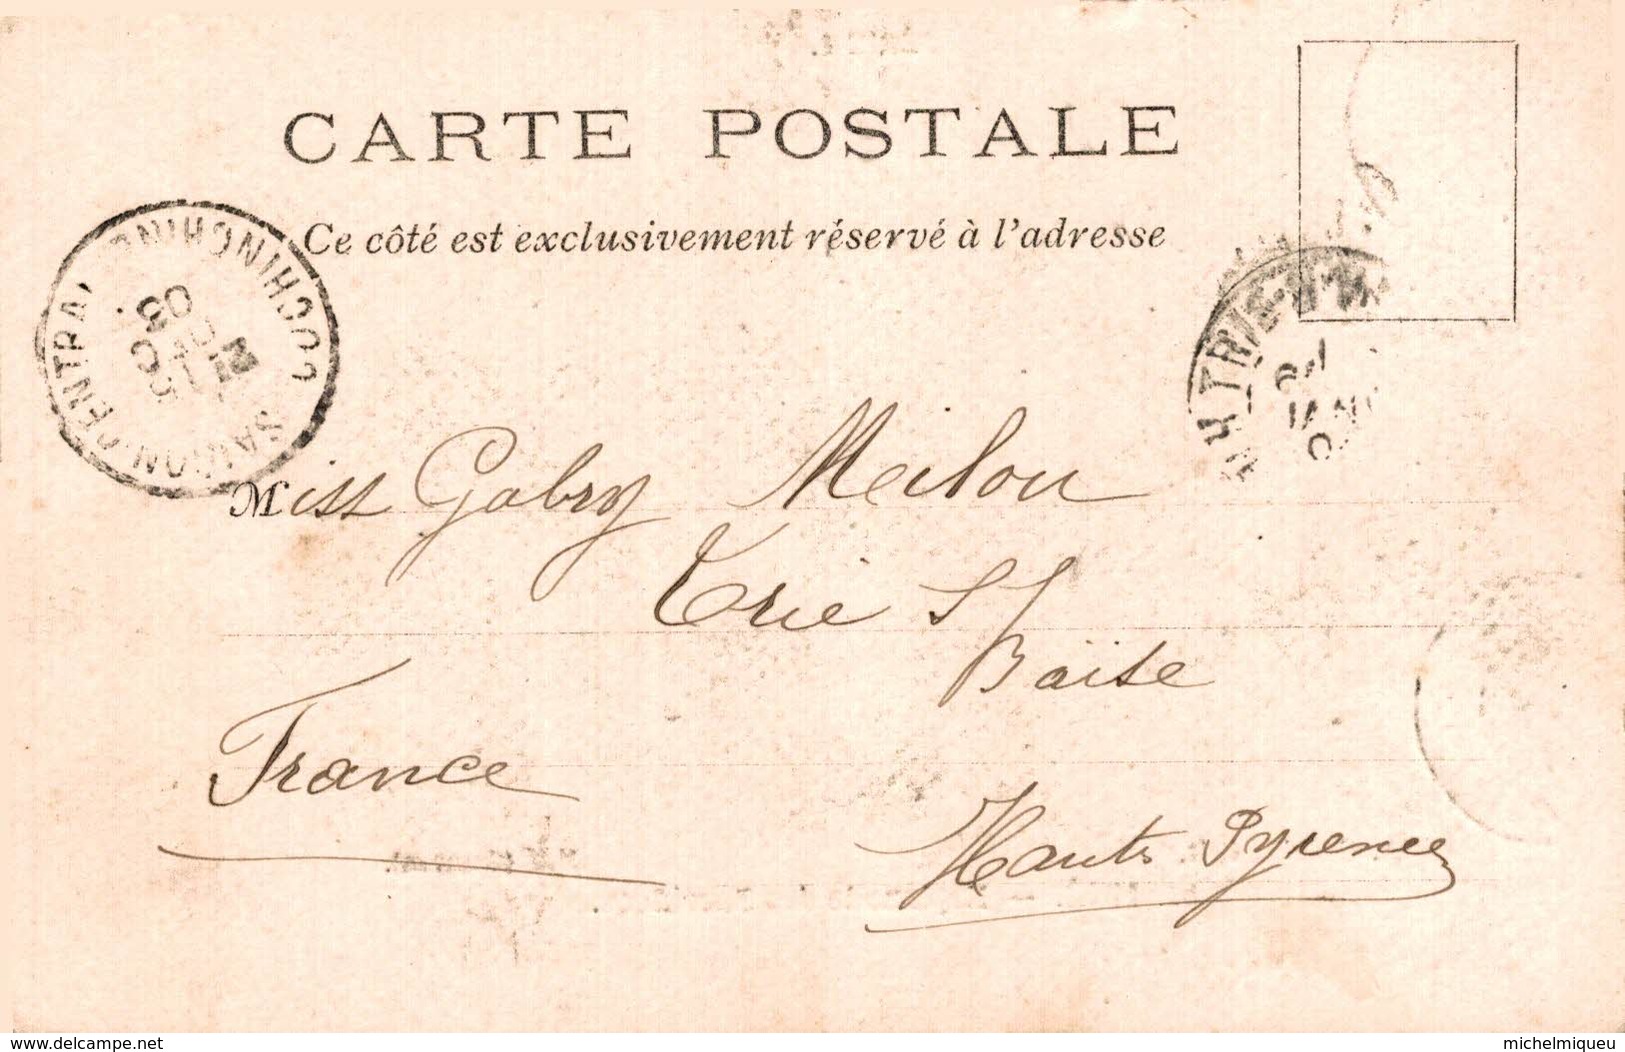 CARTE POSTALE
Ce côté est exclusivement réservé à l'adresse
COCHINCHINE
SAIGON-CENTRAL
03
TRIE
JANV
Miss Gabry Meilou
Trie S/
Baïse
France
Hauts Pyrenees
www.delcampe.net
michelmiqueu